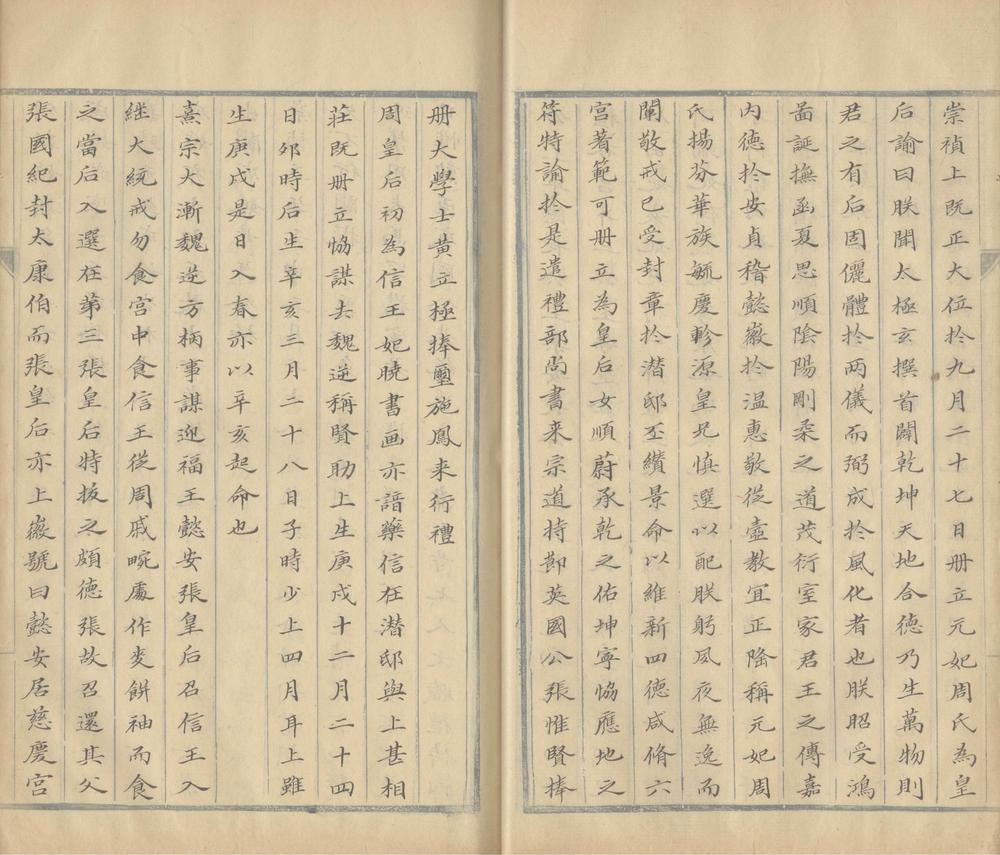 崇禎上既正大位扵九月二十七日册立元妃周氏為皇
后諭曰朕聞太極玄撰首闢乾坤天地合德乃生萬物則
君之有后固儷體扵兩儀而弼成扵風化者也朕昭受鴻
啚誕撫函夏思順陰陽剛柔之道茂衍室家君王之傳嘉
内德扵安貞稽懿徽扵温惠敬從壼教宜正隆稱元妃周
氏揚芬華族毓慶軫源皇兄慎選以配朕躬夙夜無逸而
闈敬戒已受封章扵潜邸丕纉景命以維新四德咸脩六
宮著範可册立為皇后女順蔚承乾之佑坤寧恊應地之
符特諭扵是遣禮部尚書来宗道持節英國公張惟賢捧
册大學士黄立極捧璽施鳳来行禮
周皇后初為信王妃曉書画亦諳藥信在潜邸與上甚相
莊既册立恊謀去魏逆稱賢助上生庚戌十二月二十四
日夘時后生辛亥三月二十八日子時少上四月耳上雖
生庚戌是日入春亦以辛亥起命也
熹宗大漸魏逆方柄事謀迎福王懿安張皇后召信王入
継大統戒勿食宫中食信王從周戚畹處作麦餅袖而食
之當后入選在第三張皇后特拔之頗德張故召還其父
張國紀封太康伯而張皇后亦上徽號曰懿安居慈慶宫